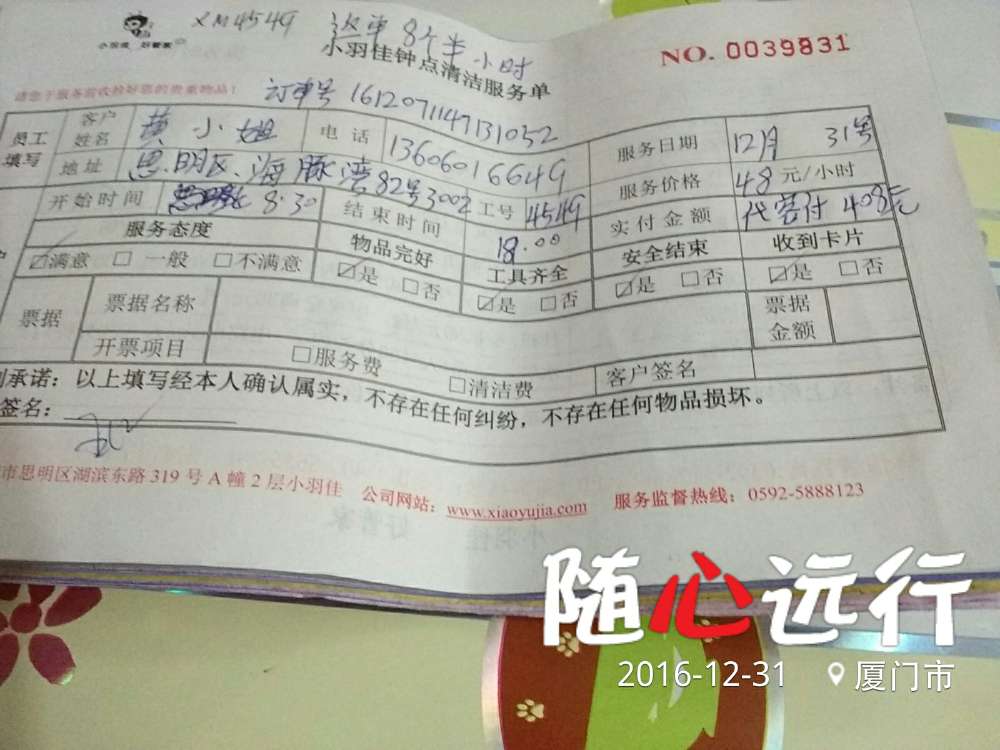 XM4549 返单 8个半小时
小羽佳 好管家
小羽佳钟点清洁服务单
NO. 0039831
请您于服务前收拾好您的贵重物品！
订单号 1612071147131052
员工填写 客户姓名 黄小姐 电话 13606016649 服务日期 12月 31号
地址 思明区海豚湾82号3002 服务价格 48 元/小时
开始时间 8:30 结束时间 18:00 工号 4549 实付金额 代客付 408元
服务态度 物品完好 工具齐全 安全结束 收到卡片
☑满意 □一般 □不满意 ☑是 □否 ☑是 □否 ☑是 □否 ☑是 □否
票据 票据名称 票据金额
开票项目 □服务费 □清洁费 客户签名
承诺：以上填写经本人确认属实，不存在任何纠纷，不存在任何物品损坏。
签名：
市思明区湖滨东路 319 号 A 幢 2 层小羽佳 公司网站：www.xiaoyujia.com 服务监督热线：0592-5888123
随心远行
2016-12-31 厦门市